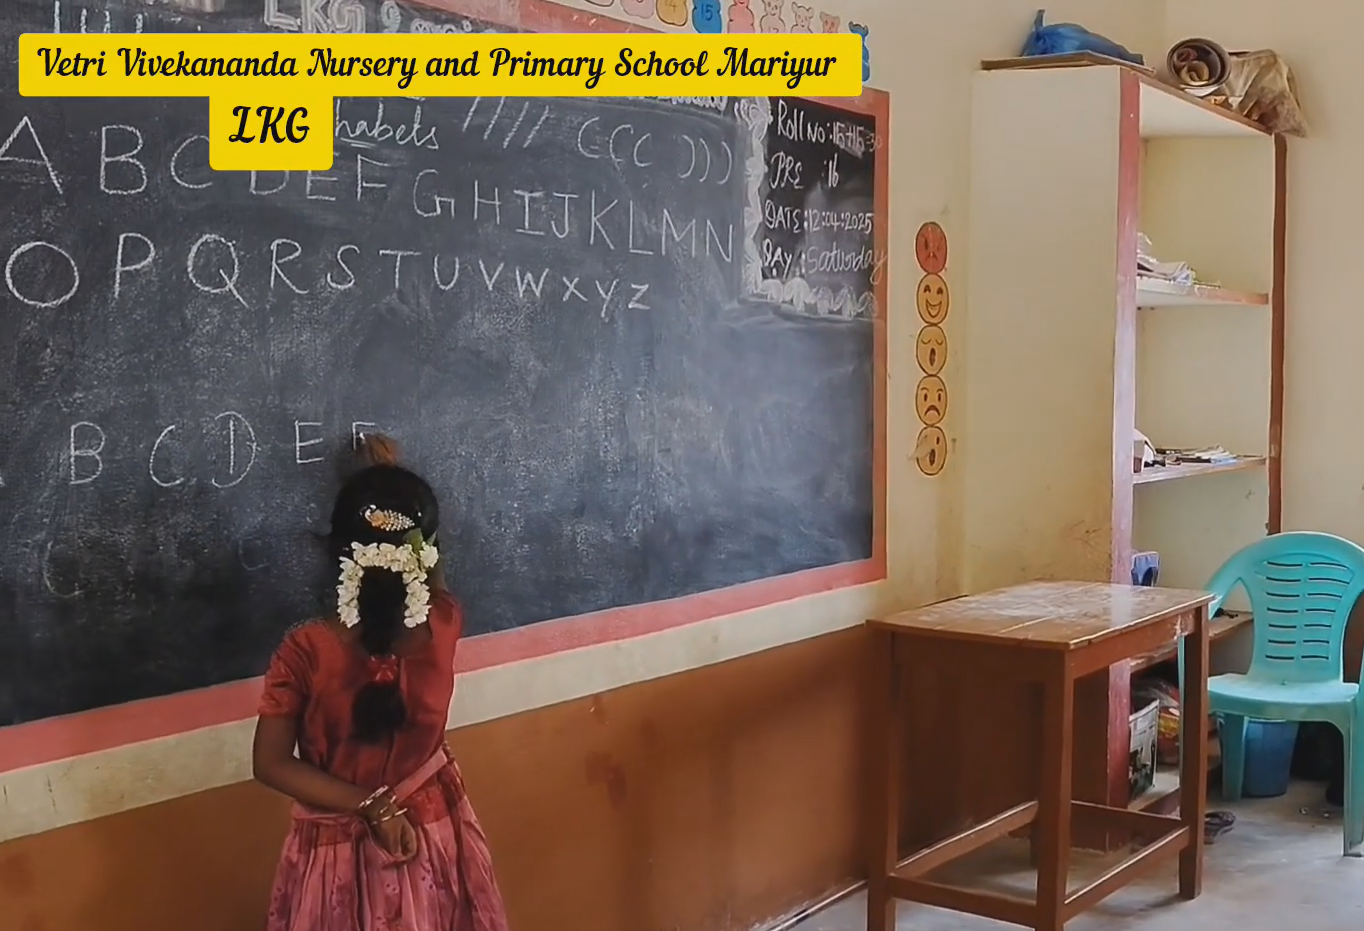 Vetri Vivekananda Nursery and Primary School Mariyur
LKG
LKG
14 15
habets
//// ((( )))
A B C D E F G H I J K L M N
O P Q R S T U V W X Y Z
Roll No: 15+15=30
PRE : 16
DATE: 12:04:2025
DAY : Saturday
B C D E F